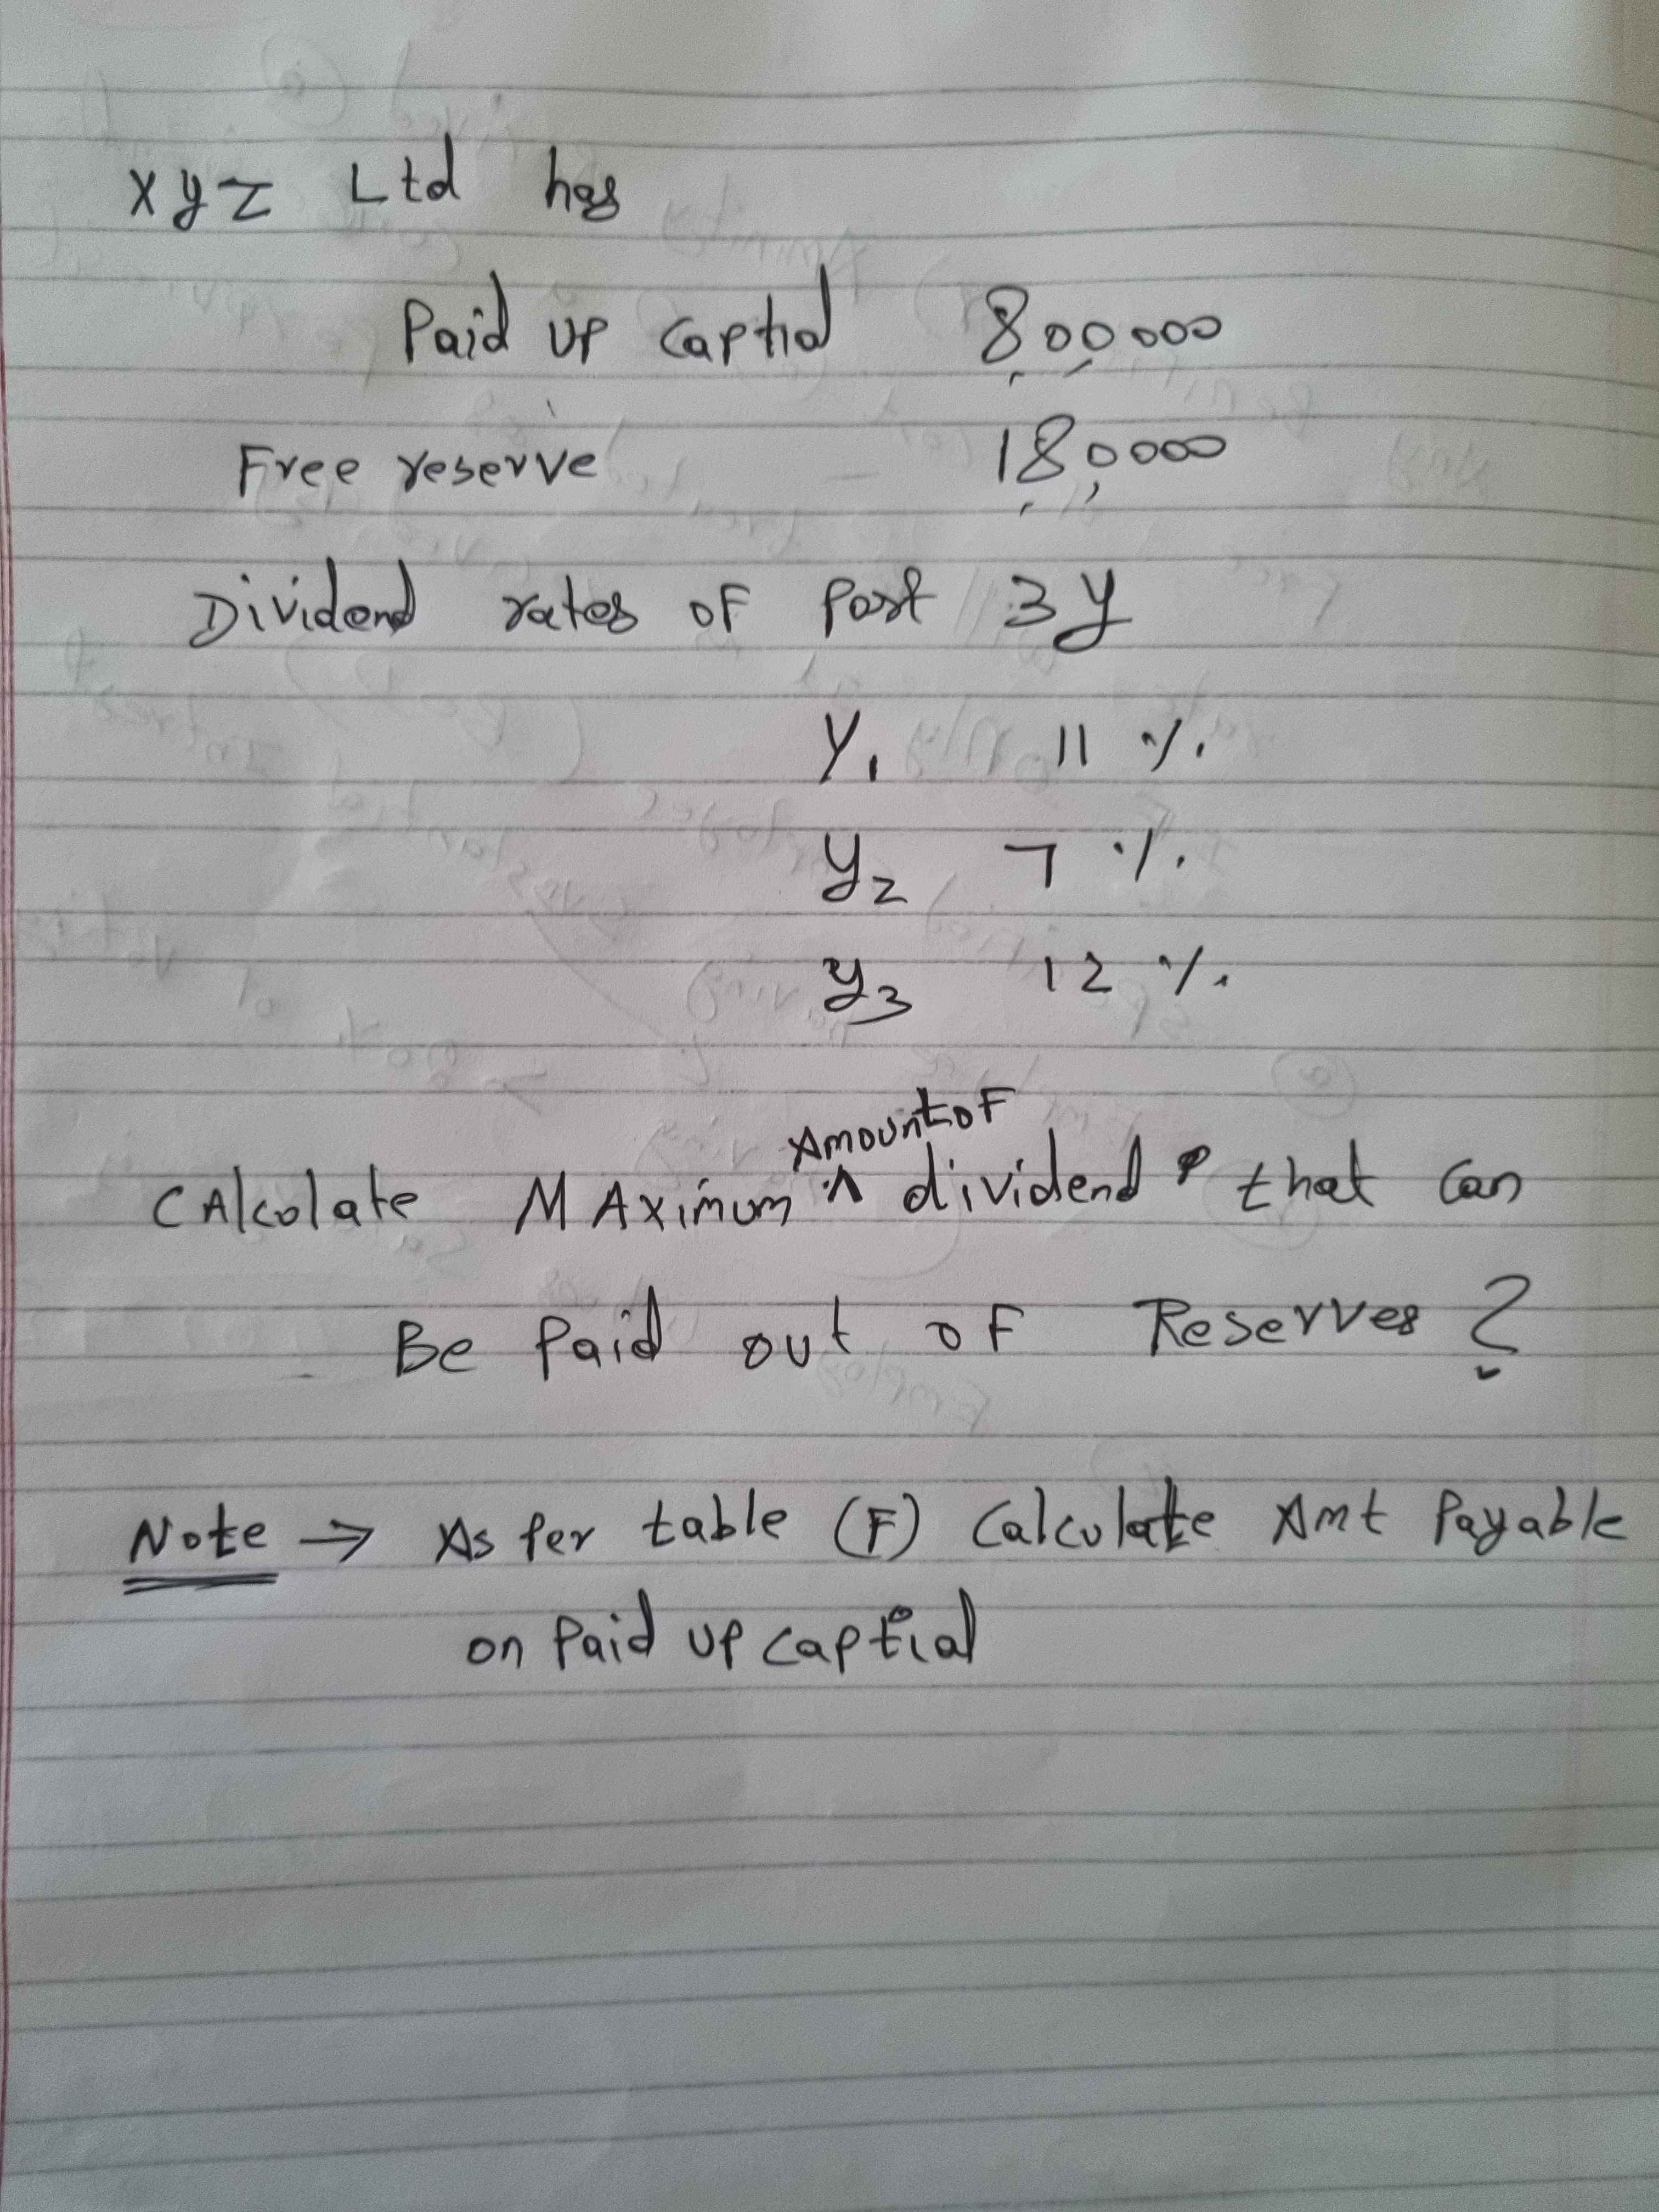 XYZ Ltd has
Paid up captial 8,00,000
Free reserve 1,80,000
Dividend rates of Past 3y
Y1 11 %
Y2 7 %
Y3 12 %
Amount of
CAlcolate MAximum ^ dividend that can
Be Paid out of Reserves ?
Note → As Per table (F) Calculate Amt Payable
on Paid up captial